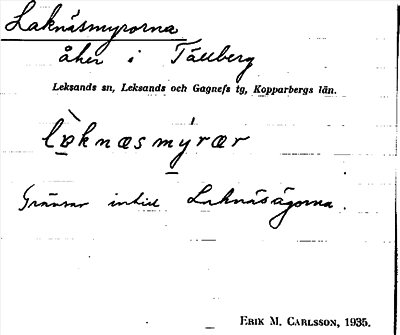 Laknäsmyrorna
åker i Tällberg
Leksands sn, Leksands och Gagnefs tg, Kopparbergs län.
lɒ̀knæsmýrær
Gränsar intill Laknäsägorna.
ERIK M. CARLSSON, 1935.